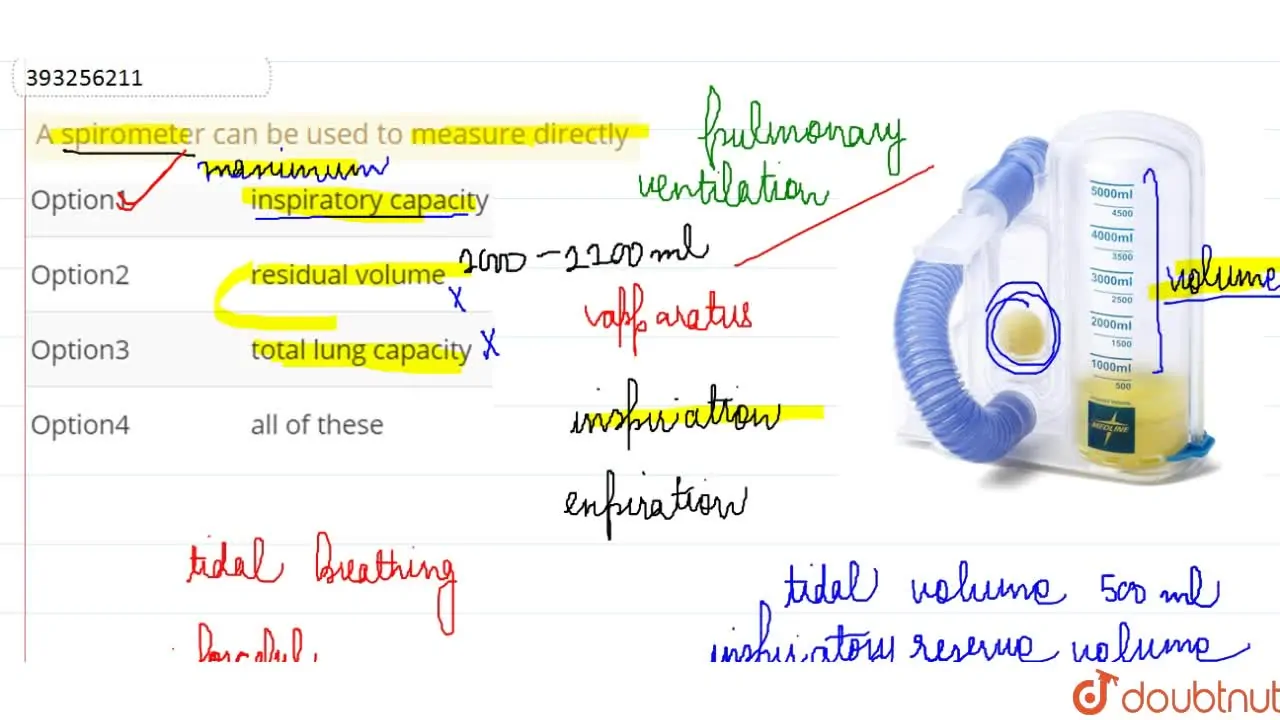 393256211
A spirometer can be used to measure directly
maximum
Option1 inspiratory capacity
Option2 residual volume
2000 - 2200 ml
x
Option3 total lung capacity x
Option4 all of these
pulmonary
ventilation
apparatus
inspiration
expiration
5000ml
4500
4000ml
3500
3000ml
2500
2000ml
1500
1000ml
500
MEDLINE
volume
tidal breathing
forceful
tidal volume 500 ml
inspiratory reserve volume
doubtnut